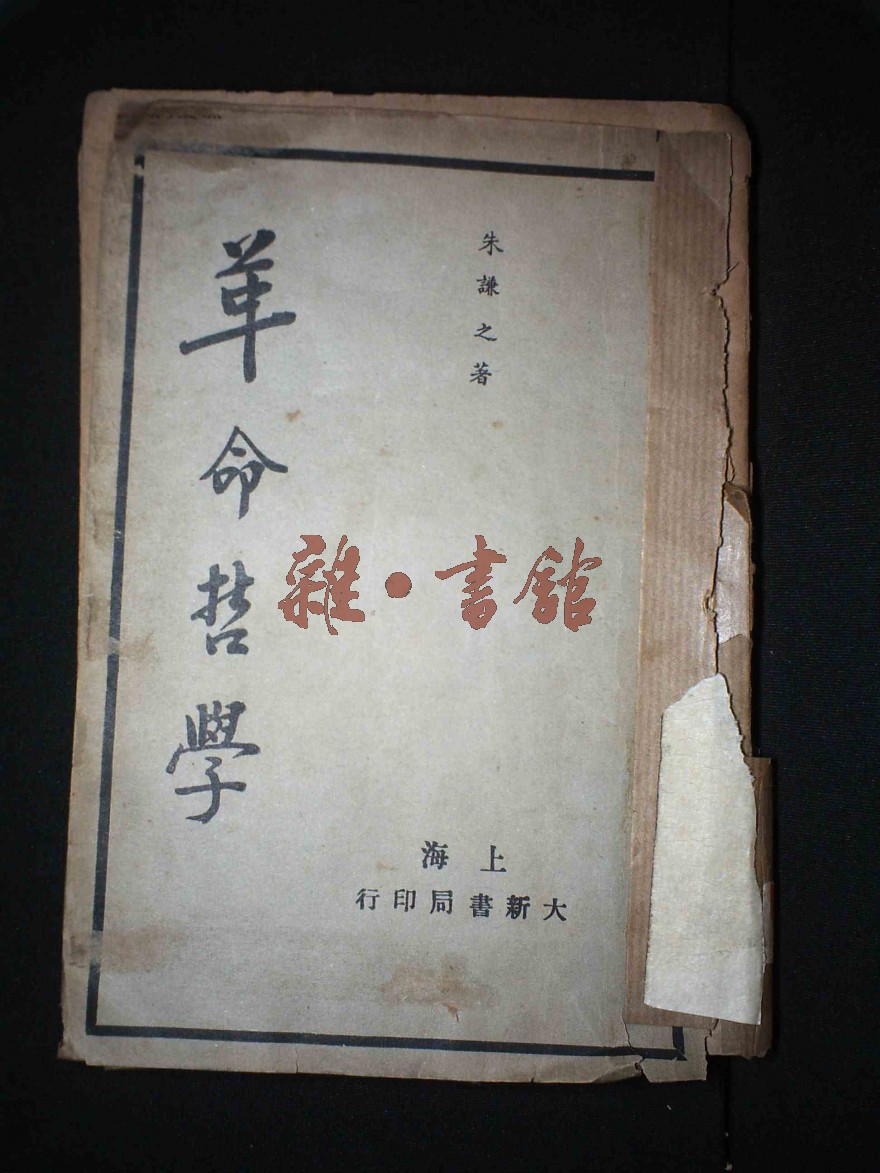 朱謙之著
革命哲學
雜·書館
上海
大新書局印行